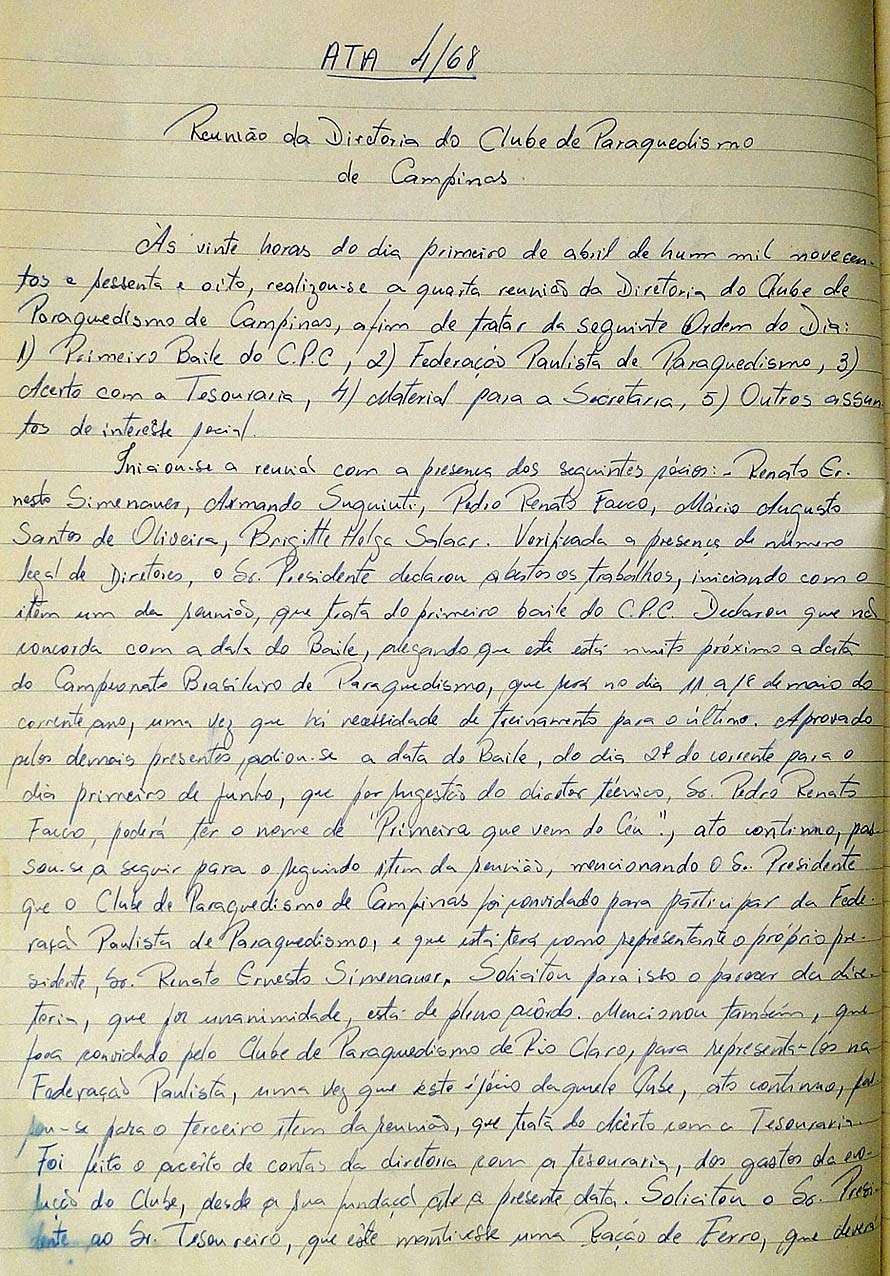 ATA 4/68
Reunião da Diretoria do Clube de Paraquedismo
de Campinas.
Às vinte horas do dia primeiro de abril de hum mil novecen-
tos e sessenta e oito, realizou-se a quarta reunião da Diretoria do Clube de
Paraquedismo de Campinas, afim de tratar da seguinte Ordem do Dia:
1) Primeiro Baile do C.P.C, 2) Federação Paulista de Paraquedismo, 3)
Acerto com a Tesouraria, 4) Material para a Secretaria, 5) Outros assun
tos de interêsse social.
Iniciou-se a reunião com a presença dos seguintes sócios:- Renato Er-
nesto Simenauer, Armando Suguiuti, Pedro Renato Fauco, Mário Augusto
Santos de Oliveira, Brigitte Helga Salacr. Verificada a presença de número
legal de Diretores, o Sr. Presidente declarou abertos os trabalhos, iniciando com o
item um da reunião, que trata do primeiro baile do C.P.C. Declarou que não
concorda com a data do Baile, alegando que este está muito próximo a data
do Campeonato Brasileiro de Paraquedismo, que será no dia 11 a de maio do
corrente ano, uma vez que há necessidade de treinamento para o último. Aprovado
pelos demais presentes, adiou-se a data do Baile, do dia do corrente para o
dia primeiro de junho, que por sugestão do diretor técnico, Sr. Pedro Renato
Fauco, poderá ter o nome de "Primeira que vem do Céu"., ato contínuo, pas-
sou-se a seguir para o segundo item da reunião, mencionando o Sr. Presidente
que o Clube de Paraquedismo de Campinas foi convidado para participar da Fede-
ração Paulista de Paraquedismo, e que está terá como representante o próprio pre-
sidente, Sr. Renato Ernesto Simenauer. Solicitou para isso o parecer da dire-
toria, que por unanimidade, está de pleno acôrdo. Mencionou também, que
fora convidado pelo Clube de Paraquedismo de Rio Claro, para representá-los na
Federação Paulista, uma vez que este é sócio daquele Clube, ato contínuo, pas-
sou-se para o terceiro item da reunião, que trata do Acêrto com a Tesouraria.
Foi feito o acêrto de contas da diretoria com a tesouraria, dos gastos da evo-
lução do Clube, desde a sua fundação até a presente data. Solicitou o Sr. Presi-
dente ao Sr. Tesoureiro, que êste mantivesse uma Ração de Ferro, que deverá